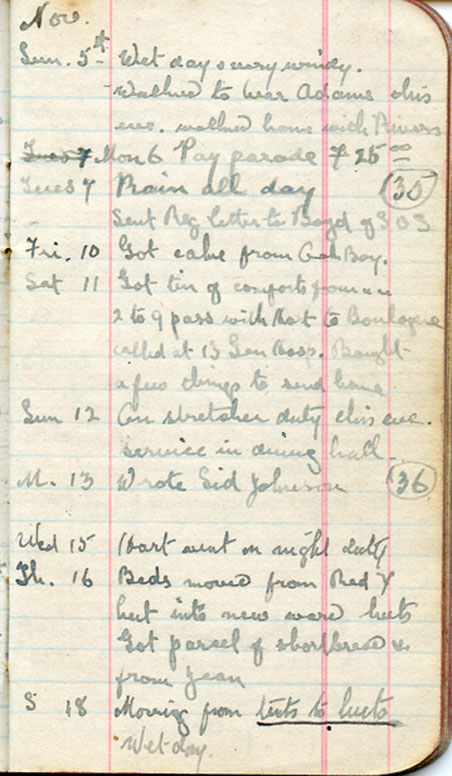 Nov.
Sun. 5th Wet day & very windy.
Walked to hear Adams this
eve. walked home with Rivers
Tues 7 Mon 6 Pay parade F 25 00
Tues 7 Rain all day (35)
Sent Reg letter to Boyd of 303
Fri. 10 Got cake from Boy.
Sat 11 Got tin of comforts from " "
2 to 9 pass with Hart to Boulogne
called at 13 Gen Hosp. Bought
a few things to send home
Sun 12 On stretcher duty this eve.
Service in dining hall.
M. 13 Wrote Sid Johnson (36)
Wed 15 Hart went on night duty
Th. 16 Beds moved from Red X
hut into new ward huts
Got parcel of shortbread &c
from Jean
S 18 Moving from tents to huts
Wet day.